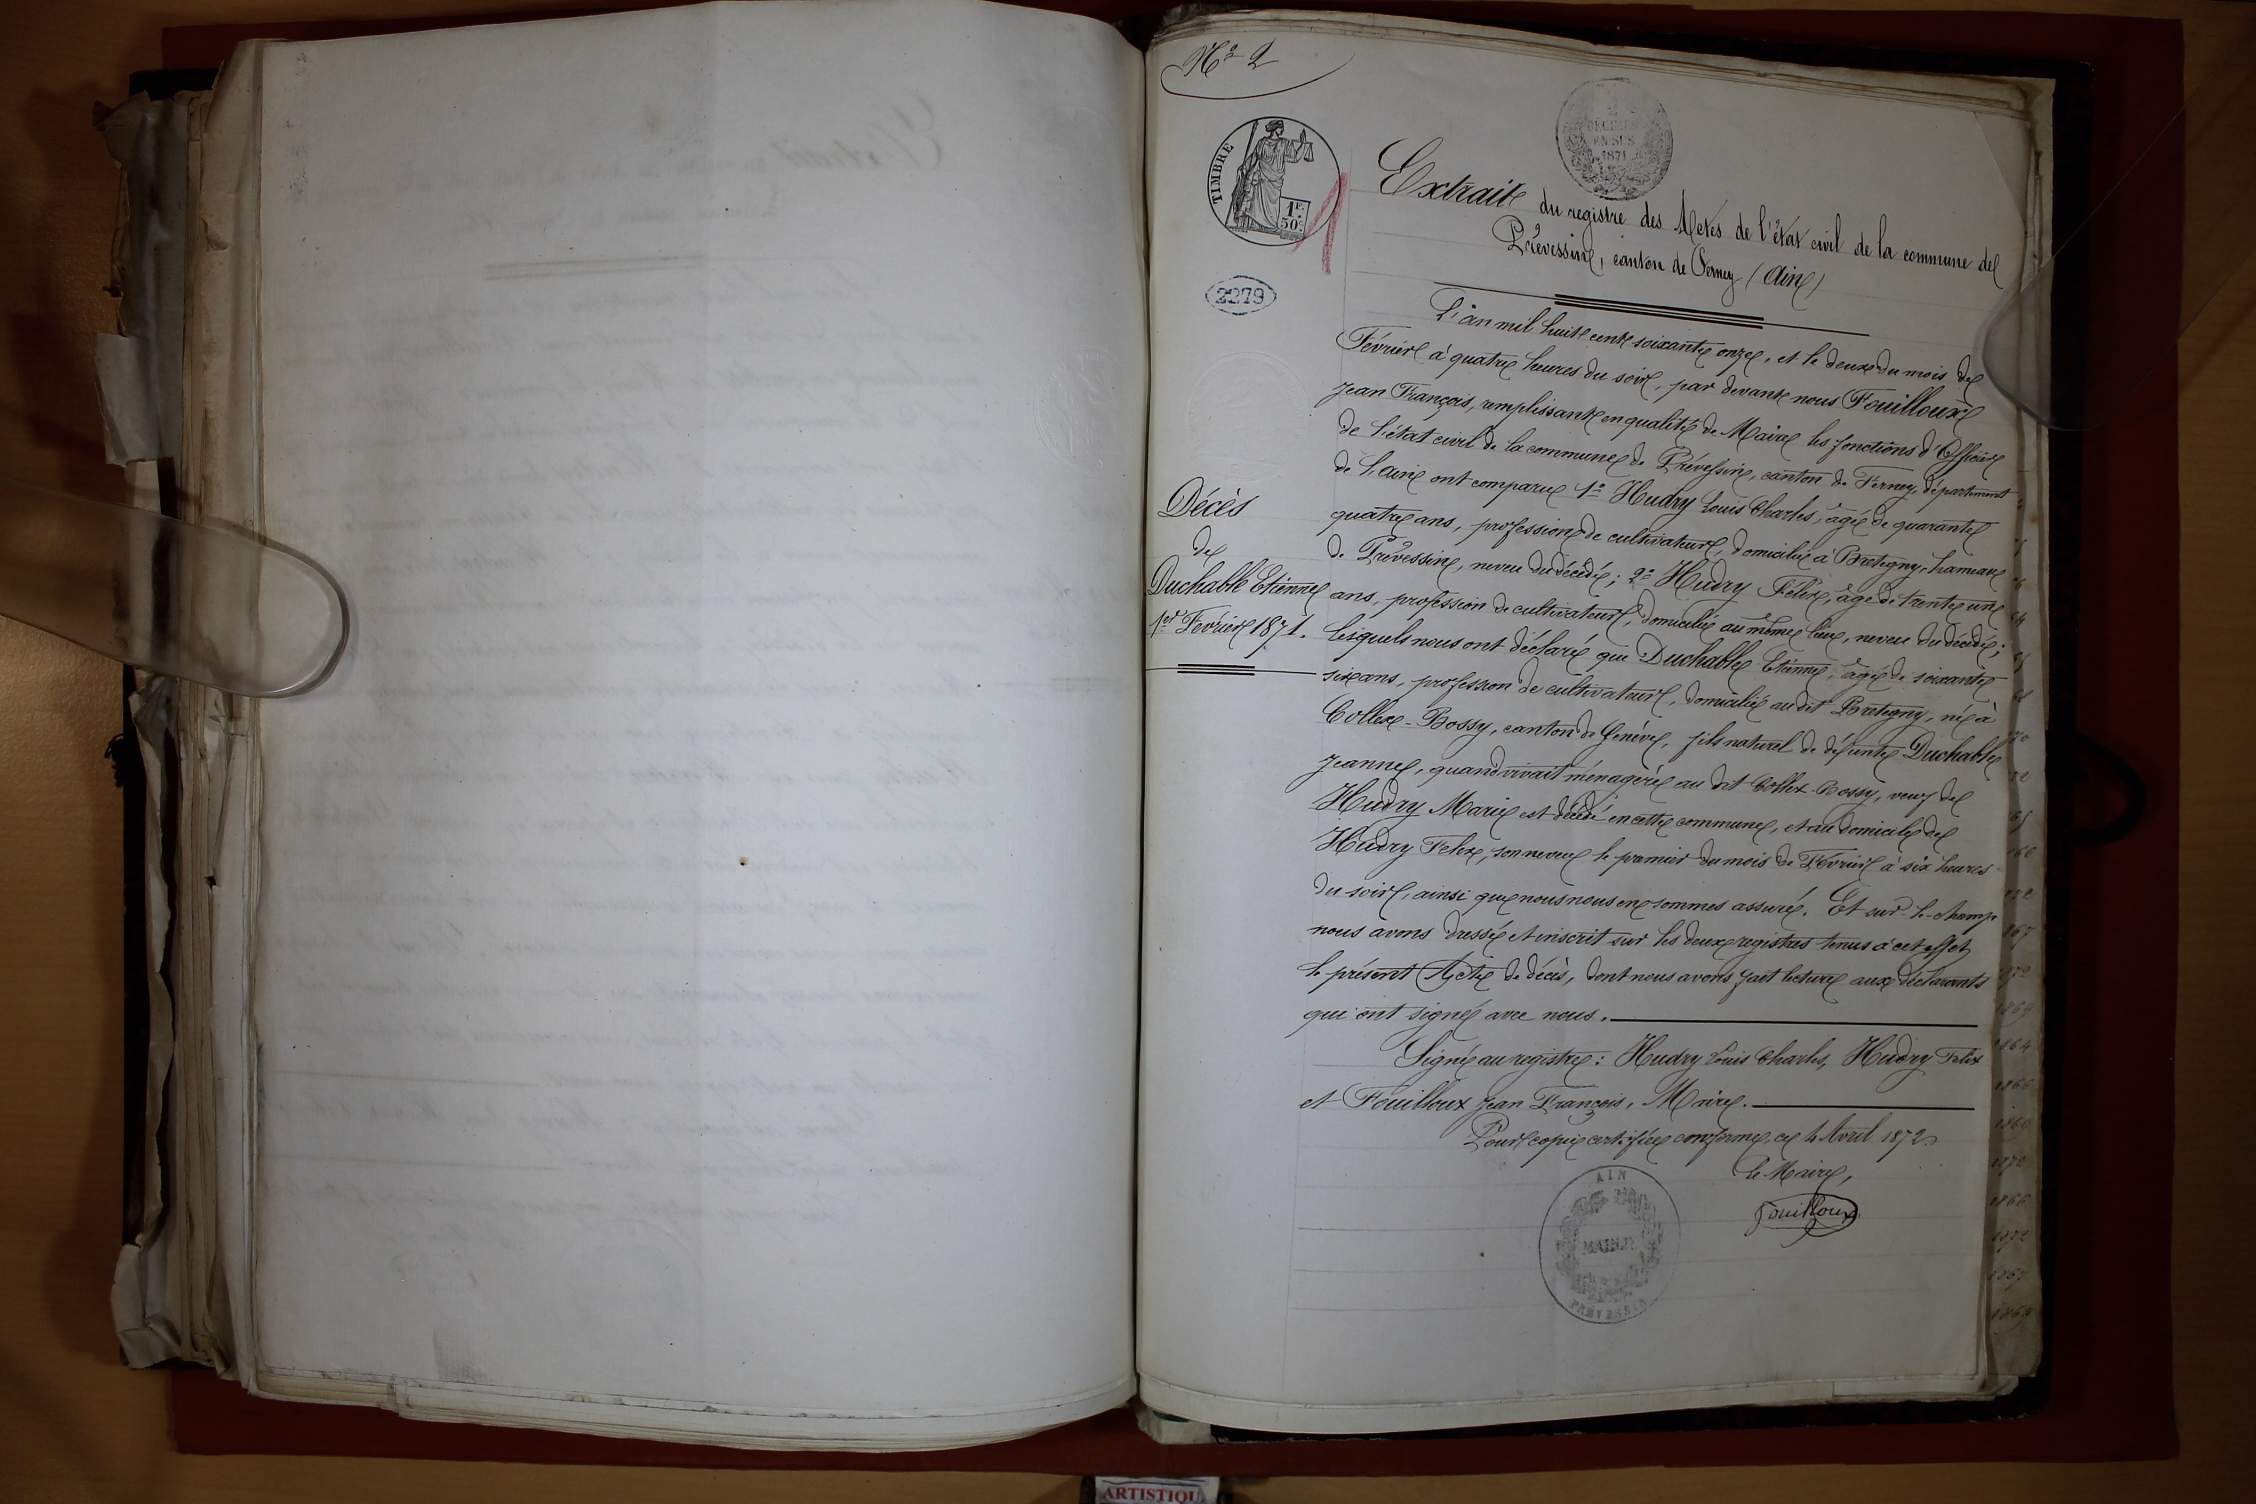 Nº 2
TIMBRE
1F.
50c.
2279
2
DÉCIMES
EN SUS
1871
Extrait du registre des Actes de l'état civil de la commune de
Prévessin, canton de Ferney (Ain)
L'an mil huit cent soixante onze, et le deux du mois de
Février à quatre heures du soir, par devant nous Fouilloux
Jean François, remplissant en qualité de Maire les fonctions d'Officier
de l'état civil de la commune de Prévessin, canton de Ferney, département
de l'ain ont comparu 1º Hudry Louis Charles, âgé de quarante
quatre ans, profession de cultivateur, domicilié à Bretigny, hameau
de Prévessin, neveu du décédé; 2º Hudry Félix, âgé de trente une
ans, profession de cultivateur, domicilié au même lieu, neveu du décédé;
lesquels nous ont déclaré que Duchable Etienne, âgé de soixante
six ans, profession de cultivateur, domicilié au dit Bretigny, né à
Collex-Bossy, canton de Genève, fils naturel de défunte Duchable
Jeanne, quand vivait ménagère au dit Collex-Bossy, veuf de
Hudry Marie est décédé en cette commune, et au domicile de
Hudry Felix, son neveu le premier du mois de Février à six heures
du soir, ainsi que nous nous en sommes assuré. Et sur-le-champ
nous avons dressé et inscrit sur les deux registres tenus à cet effet
le présent Acte de décès, dont nous avons fait lecture aux déclarants
qui ont signé avec nous.
Signé au registre: Hudry Louis Charles, Hudry Felix
et Fouilloux Jean François, Maire.
Pour copie certifiée conforme, ce 4 Avril 1872
Le Maire,
Fouilloux
Décès
de
Duchable Etienne
1er Février 1871.
AIN
MAIRIE
PREVESSIN
ARTISTIQU